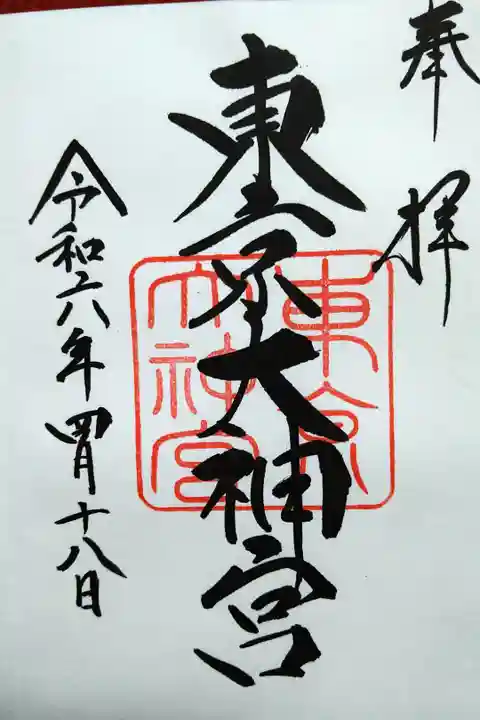 奉拝
東京大神宮
東京
大神宮
令和六年四月十八日